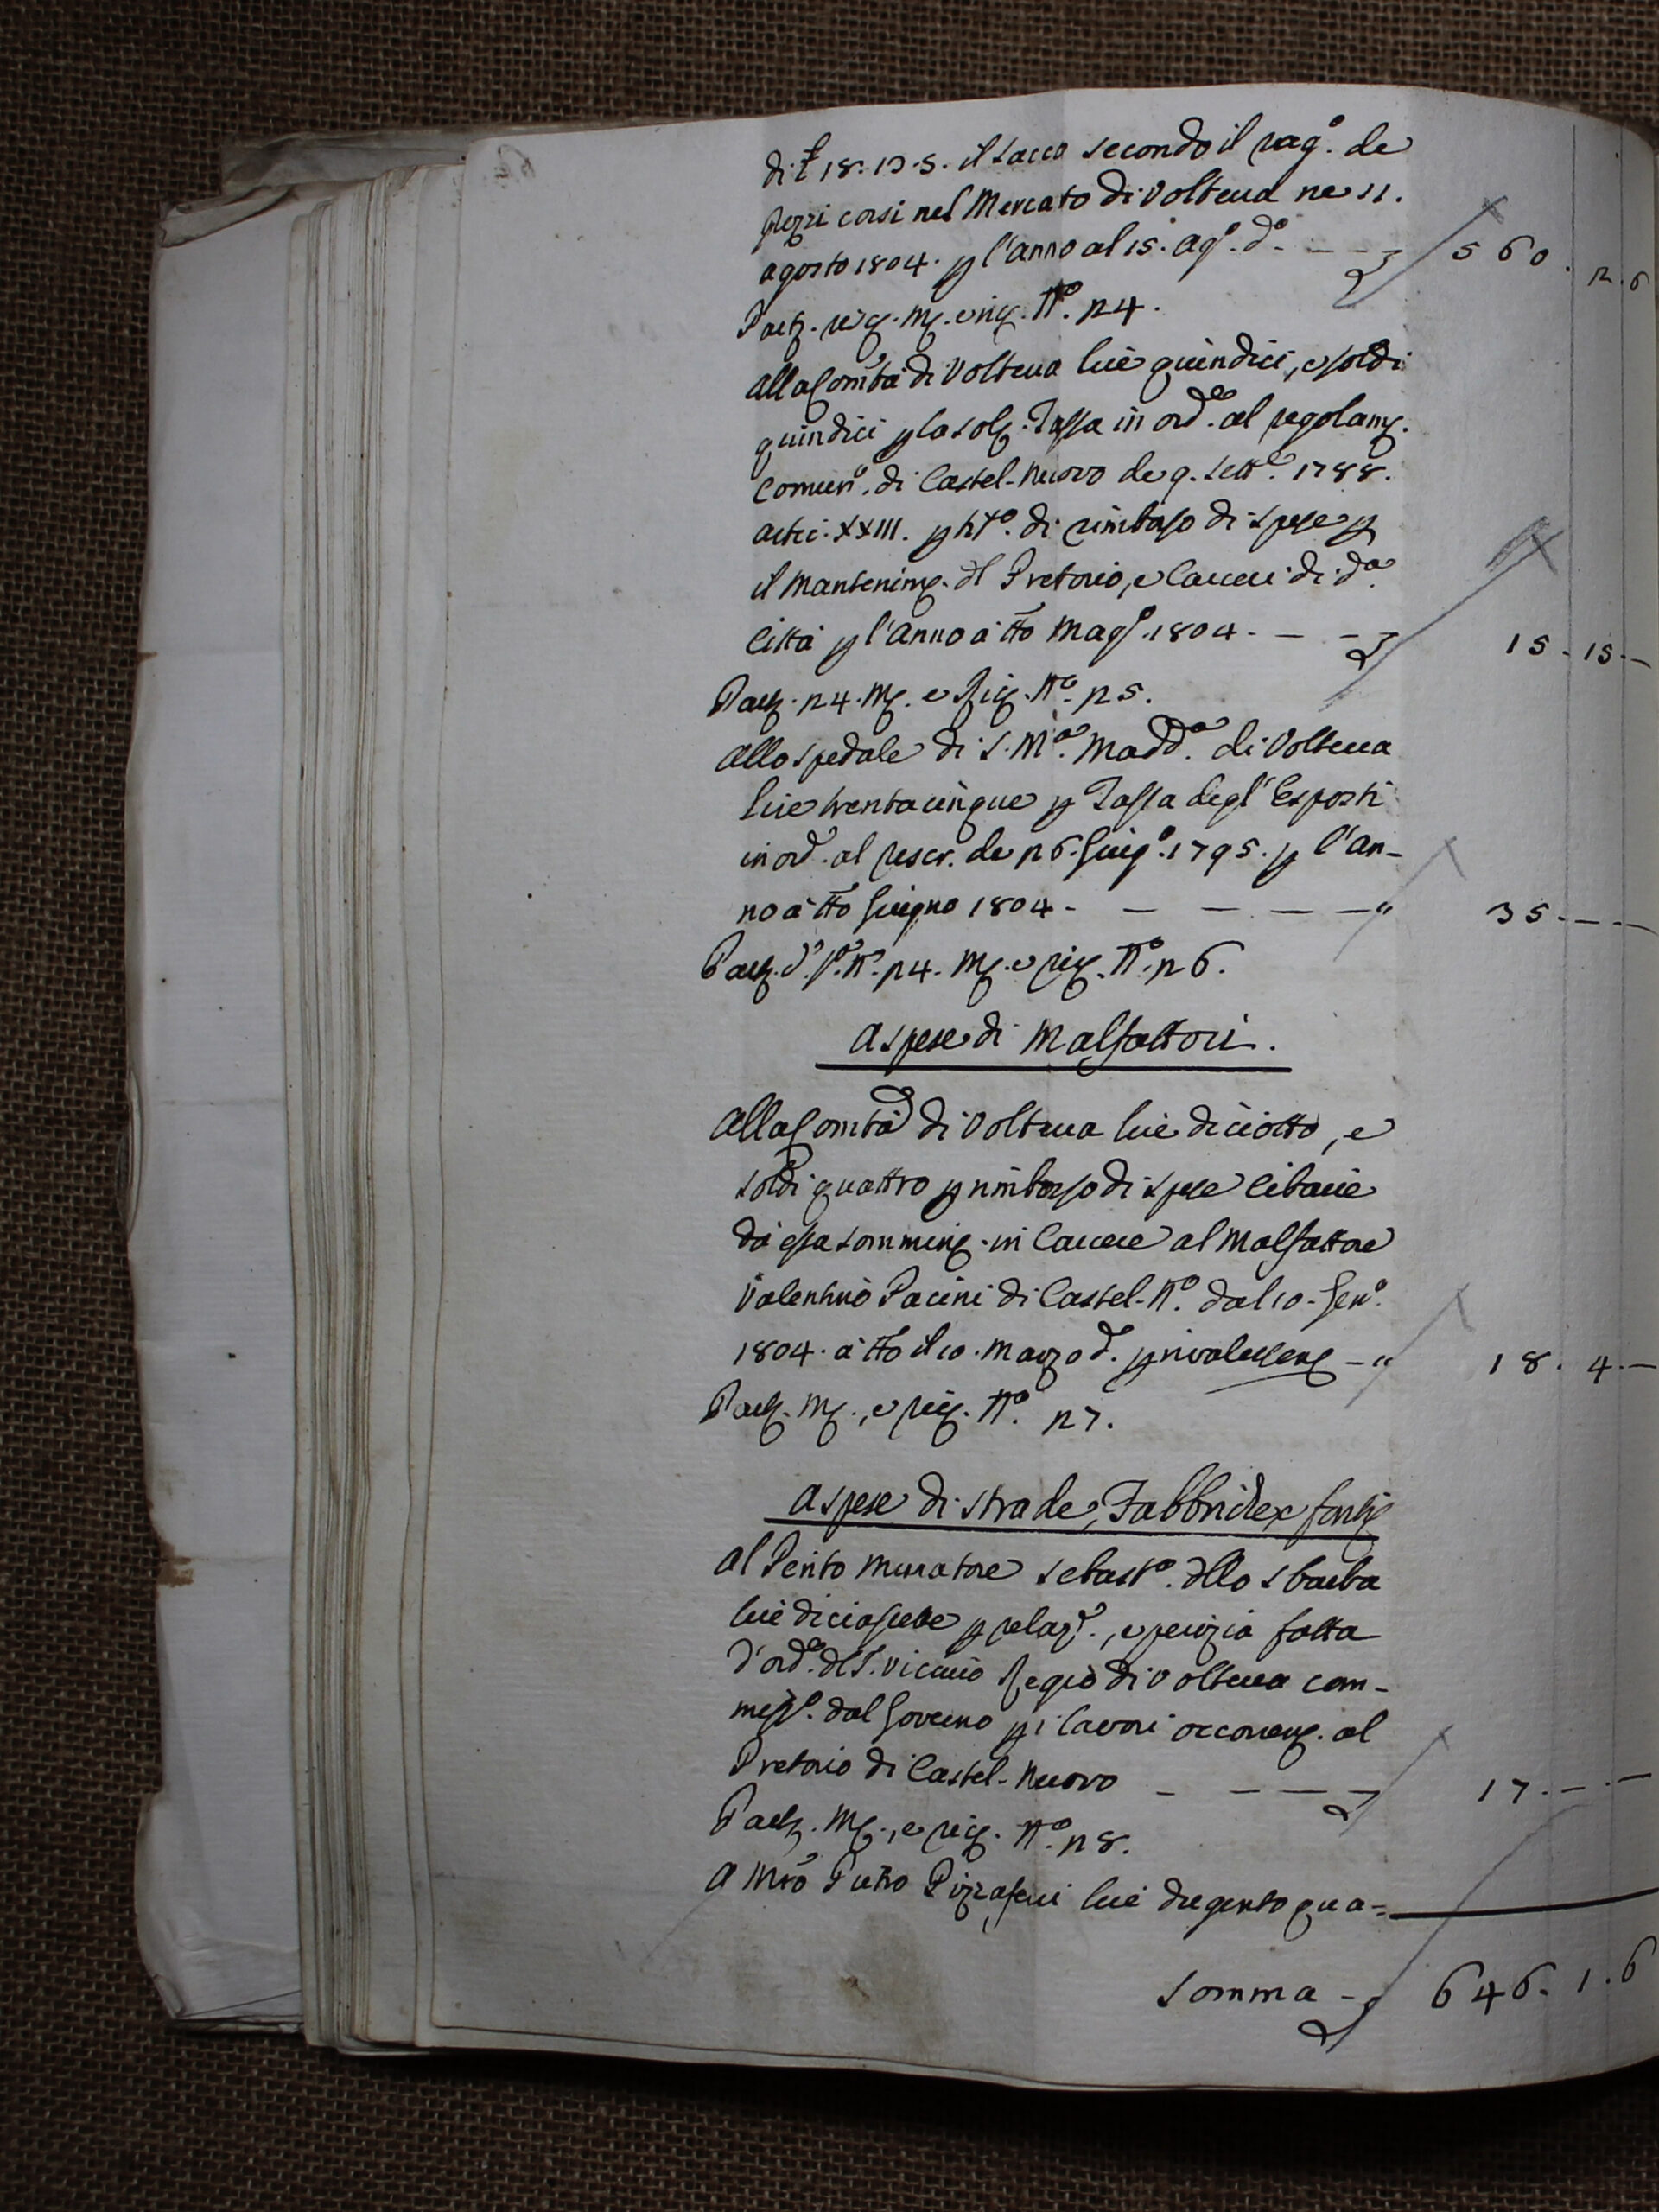 di £ 18. 13. 5. il sacco secondo il rag.º de
prezzi corsi nel Mercato di Volterra ne 11.
agosto 1804. p l'anno al 15. Ag.º d.º - - - 560. 12. 6
Part. rig. m. e rig. N.º 24.
Alla Com.tà di Volterra lire quindici, e soldi
quindici p la sol. Tassa in ord.e al regolam.
Comun.º di Castel-nuovo de 9. Sett.e 1788.
artic. XXIII. p tit.º di rimborso di spese p
il mantenim. dl Pretorio, e Carceri di d.a
Città p l'anno a tto Mag.º 1804. - - - 15. 15. -
Part. 24. m. e Rig. N.º 25.
Allo spedale di S. M.a Madd.a di Volterra
lire trentacinque p Tassa degl' Esposti
in ord. al rescr. de 26. Giug.º 1795. p l'an-
no a tto Giugno 1804 - - - - - " 35. - -
Part. d.º N.º 24. m. e rig. N.º 26.
A spese di Malfattori.
Alla Com.tà di Volterra lire diciotto, e
soldi quattro p rimborso di spese Cibarie
da essa sommin. in Carcere al Malfattore
Valentino Pacini di Castel-N.º dal 10. Gen.º
1804. a tto il 10. Marzo d. - " 18. 4. -
Part. m., e rig. N.º 27.
A spese di strade, Fabbriche, e fonti
Al Perito muratore Sebast.º dllo Sbarba
lire diciasette p relaz.e, e perizia fatta
d'ord.e dl S. Vicario Regio di Volterra com-
mess.º dal Governo p i lavori occorren. al
Pretorio di Castel-nuovo - - - - 17. - -
Part. m., e rig. N.º 28.
A Mro Pietro lire dugento qua=
Somma - 646. 1. 6